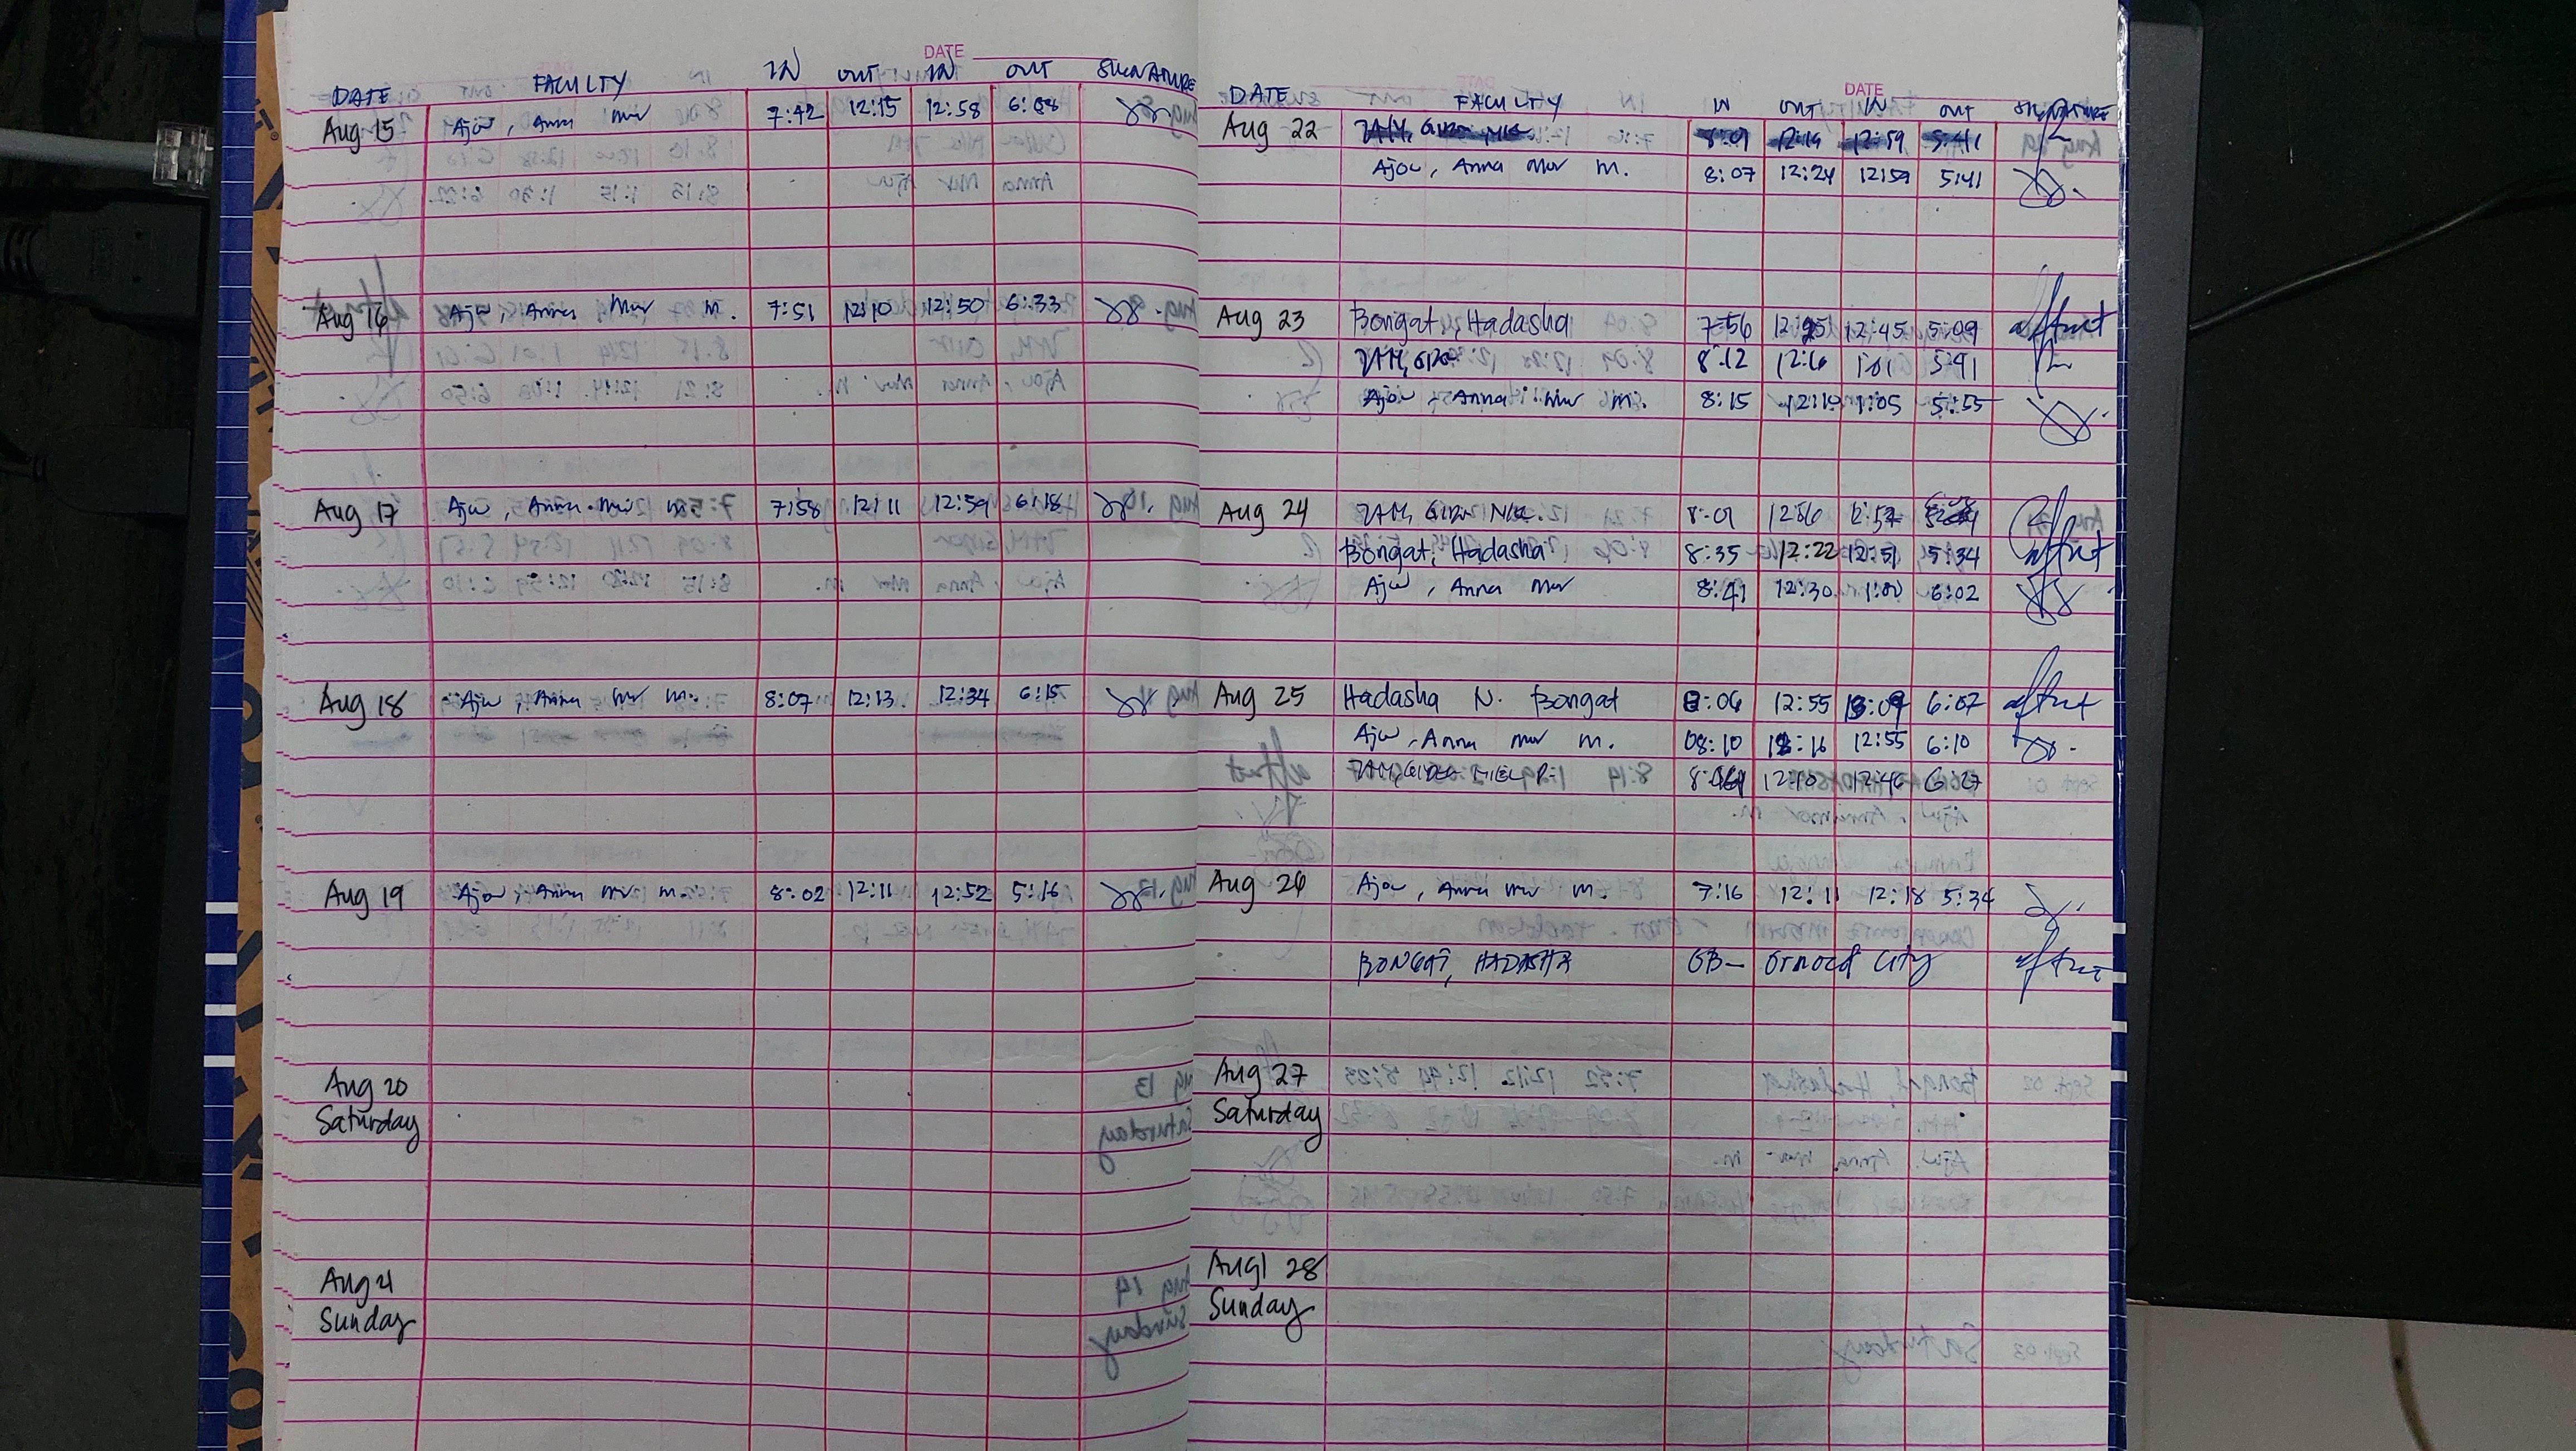 DATE
DATE FACULTY IN OUT IN OUT SIGNATURE
Aug 15 Ajou, Anna Mar 7:42 12:15 12:58 6:08
Aug 16 Ajou, Anna Mar m. 7:51 12:10 12:50 6:33
Aug 17 Ajou, Anna Mar m. 7:58 12:11 12:59 6:18
Aug 18 Ajou, Anna Mar m. 8:07 12:13 12:34 6:15
Aug 19 Ajou, Anna Mar m. 8:02 12:11 12:52 5:16
Aug 20
Saturday
Aug 21
Sunday
DATE
DATE FACULTY IN OUT IN OUT SIGNATURE
Aug 22
Ajou, Anna Mar m. 8:07 12:24 12:59 5:41
Aug 23 Bongat, Hadasha 7:56 12:45 5:09
8:12 12:16 1:01 5:41
Ajou, Anna Mar m. 8:15 12:19 1:05 5:55
Aug 24 8:01 12:57
Bongat, Hadasha 8:35 12:22 12:51 5:34
Ajou, Anna Mar 8:41 12:30 1:00 6:02
Aug 25 Hadasha N. Bongat 8:06 12:55 6:07
Ajou, Anna Mar m. 08:10 12:55 6:10
12:10 12:46 6:27
Aug 26 Ajou, Anna Mar m. 7:16 12:11 12:18 5:34
BONGAT, HADASHA OB- Ormoc City
Aug 27
Saturday
Aug 28
Sunday